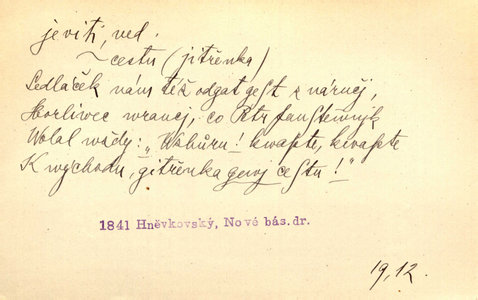 jeviti, ved.
~ cestu (jitřenka)
Sedláček nám též odgat gest z náručj,
Horliwec wraucj, co Petr
Wolal wždy: „Wzhůru! kwapte, kwapte
K wýchodu, gitřenka gewj cestu!"
1841 Hněvkovský, Nové bás. dr.
19,12.